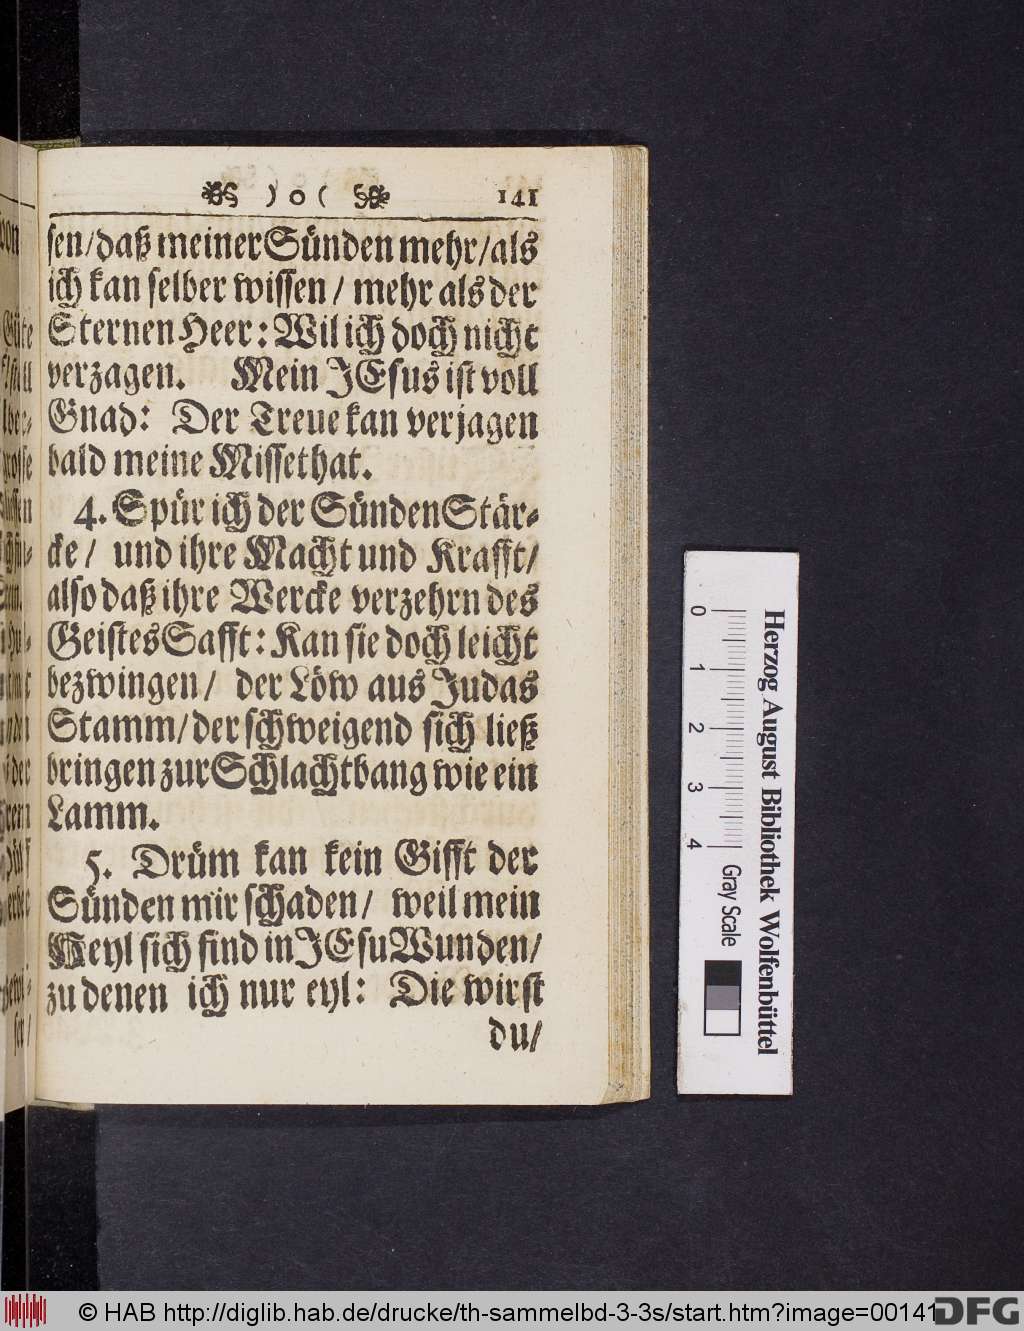 ) o ( 141
sen/daß meiner Sünden mehr/als
ich kan selber wissen / mehr als der
Sternen Heer: Wil ich doch nicht
verzagen. Mein JEsus ist voll
Gnad: Der Treue kan verjagen
bald meine Missethat.
4. Spür ich der Sünden Stär-
cke / und ihre Macht und Krafft/
also daß ihre Wercke verzehrn des
Geistes Safft: Kan sie doch leicht
bezwingen / der Löw aus Judas
Stamm/der schweigend sich ließ
bringen zur Schlachtbang wie ein
Lamm.
5. Drüm kan kein Gifft der
Sünden mir schaden / weil mein
Heyl sich find in JEsu Wunden/
zu denen ich nur eyl: Die wirst
du/
0 1 2 3 4
Gray Scale
Herzog August Bibliothek Wolfenbüttel
© HAB http://diglib.hab.de/drucke/th-sammelbd-3-3s/start.htm?image=00141
DFG